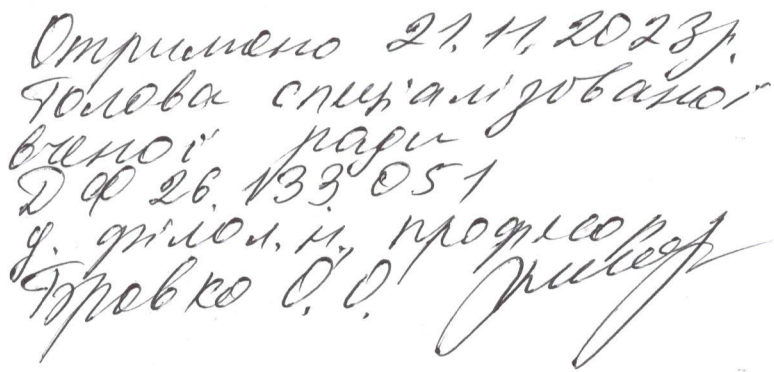 Отримано 21.11.2023р.
Голова спеціалізованої
вченої ради
ДФ 26.133.051
д. філол.н., професор
Бровко О.О.